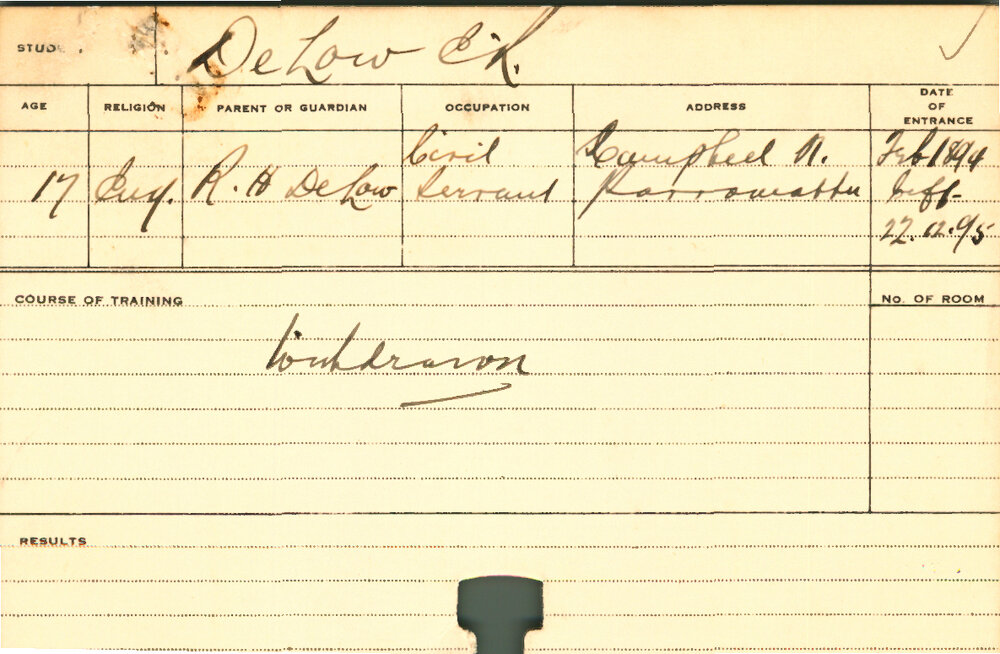 STUD
De Low E.R.
AGE RELIGION PARENT OR GUARDIAN OCCUPATION ADDRESS DATE OF ENTRANCE
17 Eng. R. H De Low Civil Servant Campbell St. Parramatta Feb 1894 Left 22.12.95
COURSE OF TRAINING No. OF ROOM
Withdrawn
RESULTS